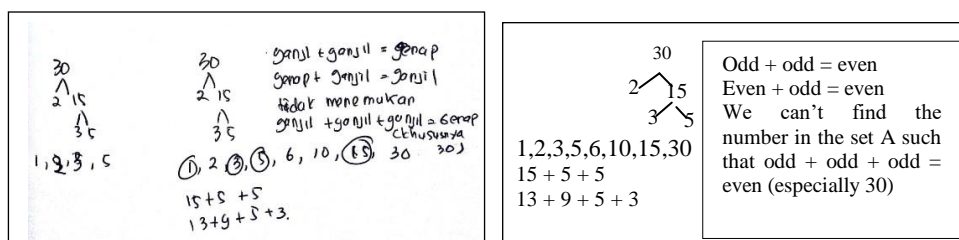 30
2 15
3 5
1, 2, 3, 5
30
2 15
3 5
ganjil + ganjil = genap
genap + ganjil = ganjil
tidak menemukan
ganjil + ganjil + ganjil = Genap
(khususnya 30)
1, 2, 3, 5, 6, 10, 15, 30
15+5 +5
13+9+5+3.
30
2 15
3 5
1,2,3,5,6,10,15,30
15 + 5 + 5
13 + 9 + 5 + 3
Odd + odd = even
Even + odd = even
We can’t find the
number in the set A such
that odd + odd + odd =
even (especially 30)